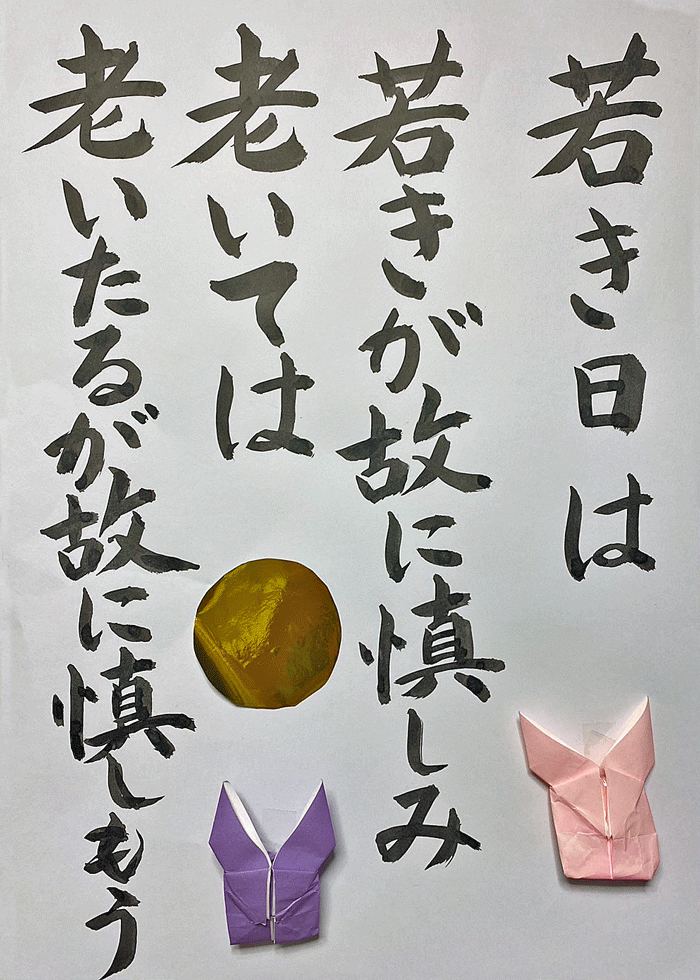 若き日は
若きが故に慎しみ
老いては
老いたるが故に慎しもう